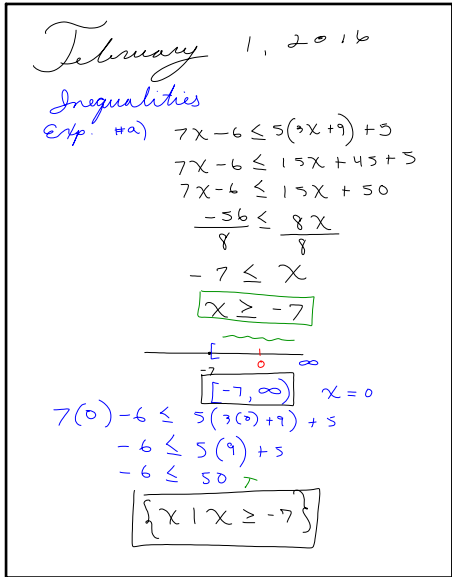 February 1, 2016
Inequalities
Exp. #a) 7x-6 ≤ 5(3x+9)+5
7x-6 ≤ 15x+45+5
7x-6 ≤ 15x+50
-56/8 ≤ 8x/8
-7 ≤ x
x ≥ -7
[
-7 0 ∞
[-7, ∞) x=0
7(0)-6 ≤ 5(3(0)+9)+5
-6 ≤ 5(9)+5
-6 ≤ 50 T
{x | x ≥ -7}